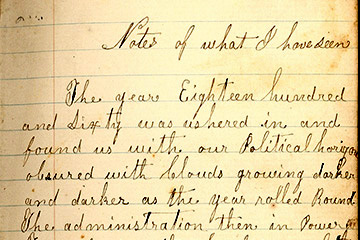 Notes of what I have seen
The year Eighteen hundred
and sixty was ushered in and
found us with our Political horizon
obsured with clouds growing darker
and darker as the year rolled Round
The administration then in Power